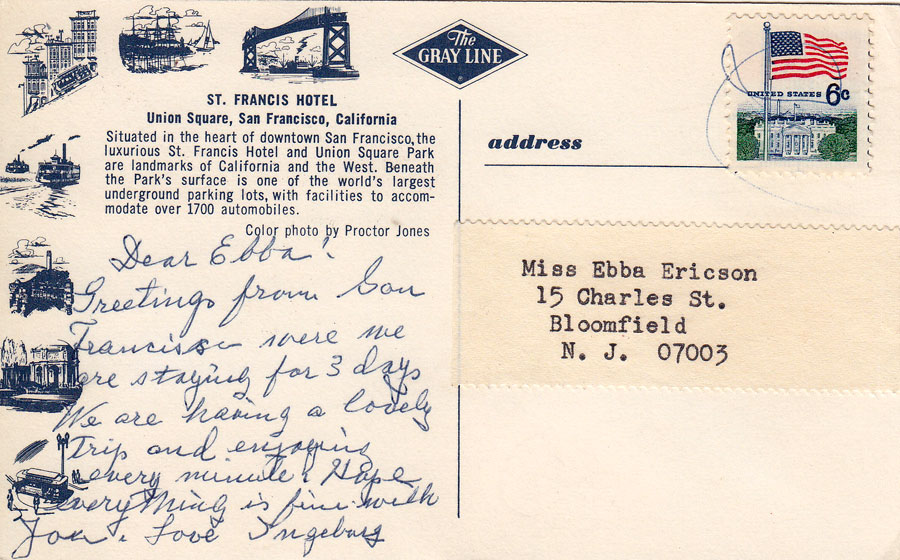 The
GRAY LINE
®
ST. FRANCIS HOTEL
Union Square, San Francisco, California
Situated in the heart of downtown San Francisco, the
luxurious St. Francis Hotel and Union Square Park
are landmarks of California and the West. Beneath
the Park's surface is one of the world's largest
underground parking lots, with facilities to accom-
modate over 1700 automobiles.
Color photo by Proctor Jones
Dear Ebba!
Greetings from San
Francisco were we
are staying for 3 days
We are having a lovely
Trip and enjoying
every minute. Hope
everything is fine with
You. Love Ingeborg
UNITED STATES 6c
address
Miss Ebba Ericson
15 Charles St.
Bloomfield
N. J. 07003